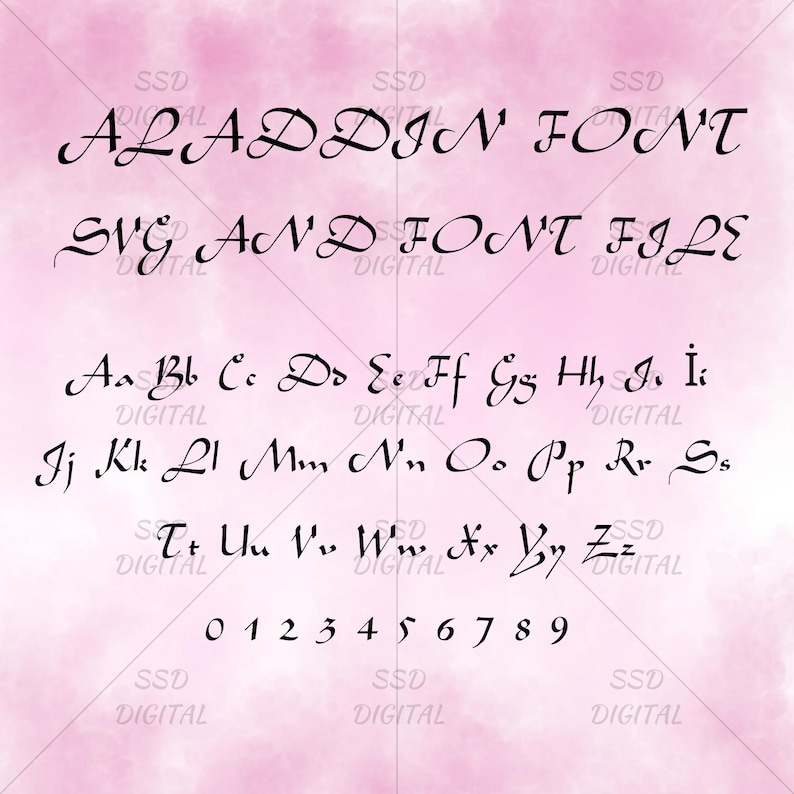 SSD SSD SSD
DIGITAL DIGITAL DIGITAL
ALADDIN FONT
SVG AND FONT FILE
SSD SSD SSD
DIGITAL DIGITAL DIGITAL
Aa Bb Cc Dd Ee Ff Gg Hh Iı İi
SSD SSD SSD
DIGITAL DIGITAL DIGITAL
Jj Kk Ll Mm Nn Oo Pp Rr Ss
Tt Uu Vv Ww Xx Yy Zz
SSD SSD SSD
DIGITAL DIGITAL DIGITAL
0 1 2 3 4 5 6 7 8 9
SSD SSD SSD
DIGITAL DIGITAL DIGITAL